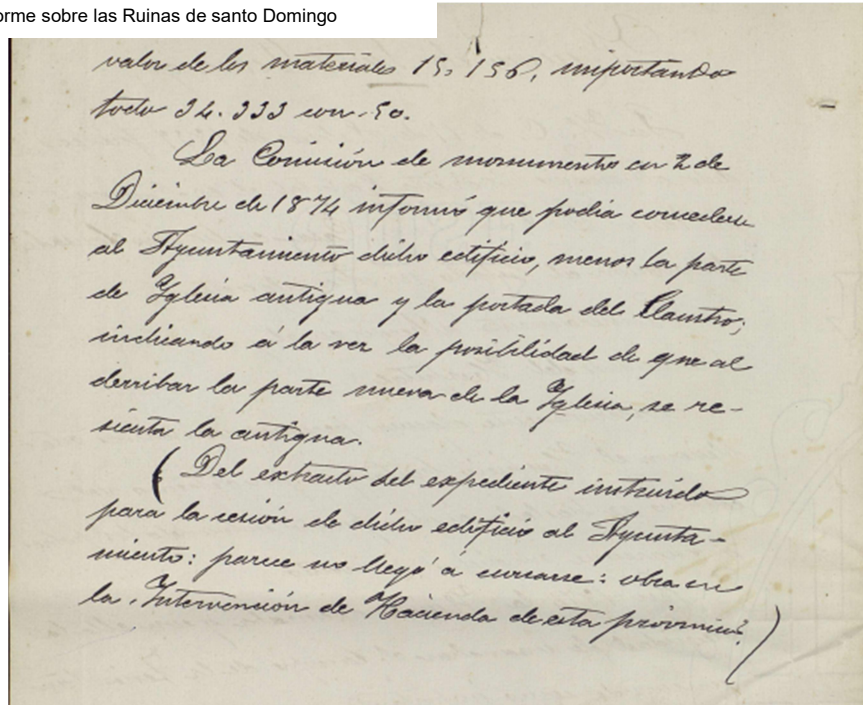 orme sobre las Ruinas de santo Domingo
valor de los materiales 15.156, importando
todo 34.333 con 50.
La Comisión de monumentos en 2 de
Diciembre de 1874 informó que podia concederse
al Ayuntamiento dicho edificio, menos la parte
de Yglesia antigua y la portada del Claustro;
indicando á la vez la posibilidad de que al
derribar la parte nueva de la Yglesia, se re-
sienta la antigua.
(Del extracto del expediente instruido
para la cesión de dicho edificio al Ayunta-
miento: parece no llegó á cursarse: obra en
la Intervención de Hacienda de esta provincia.)